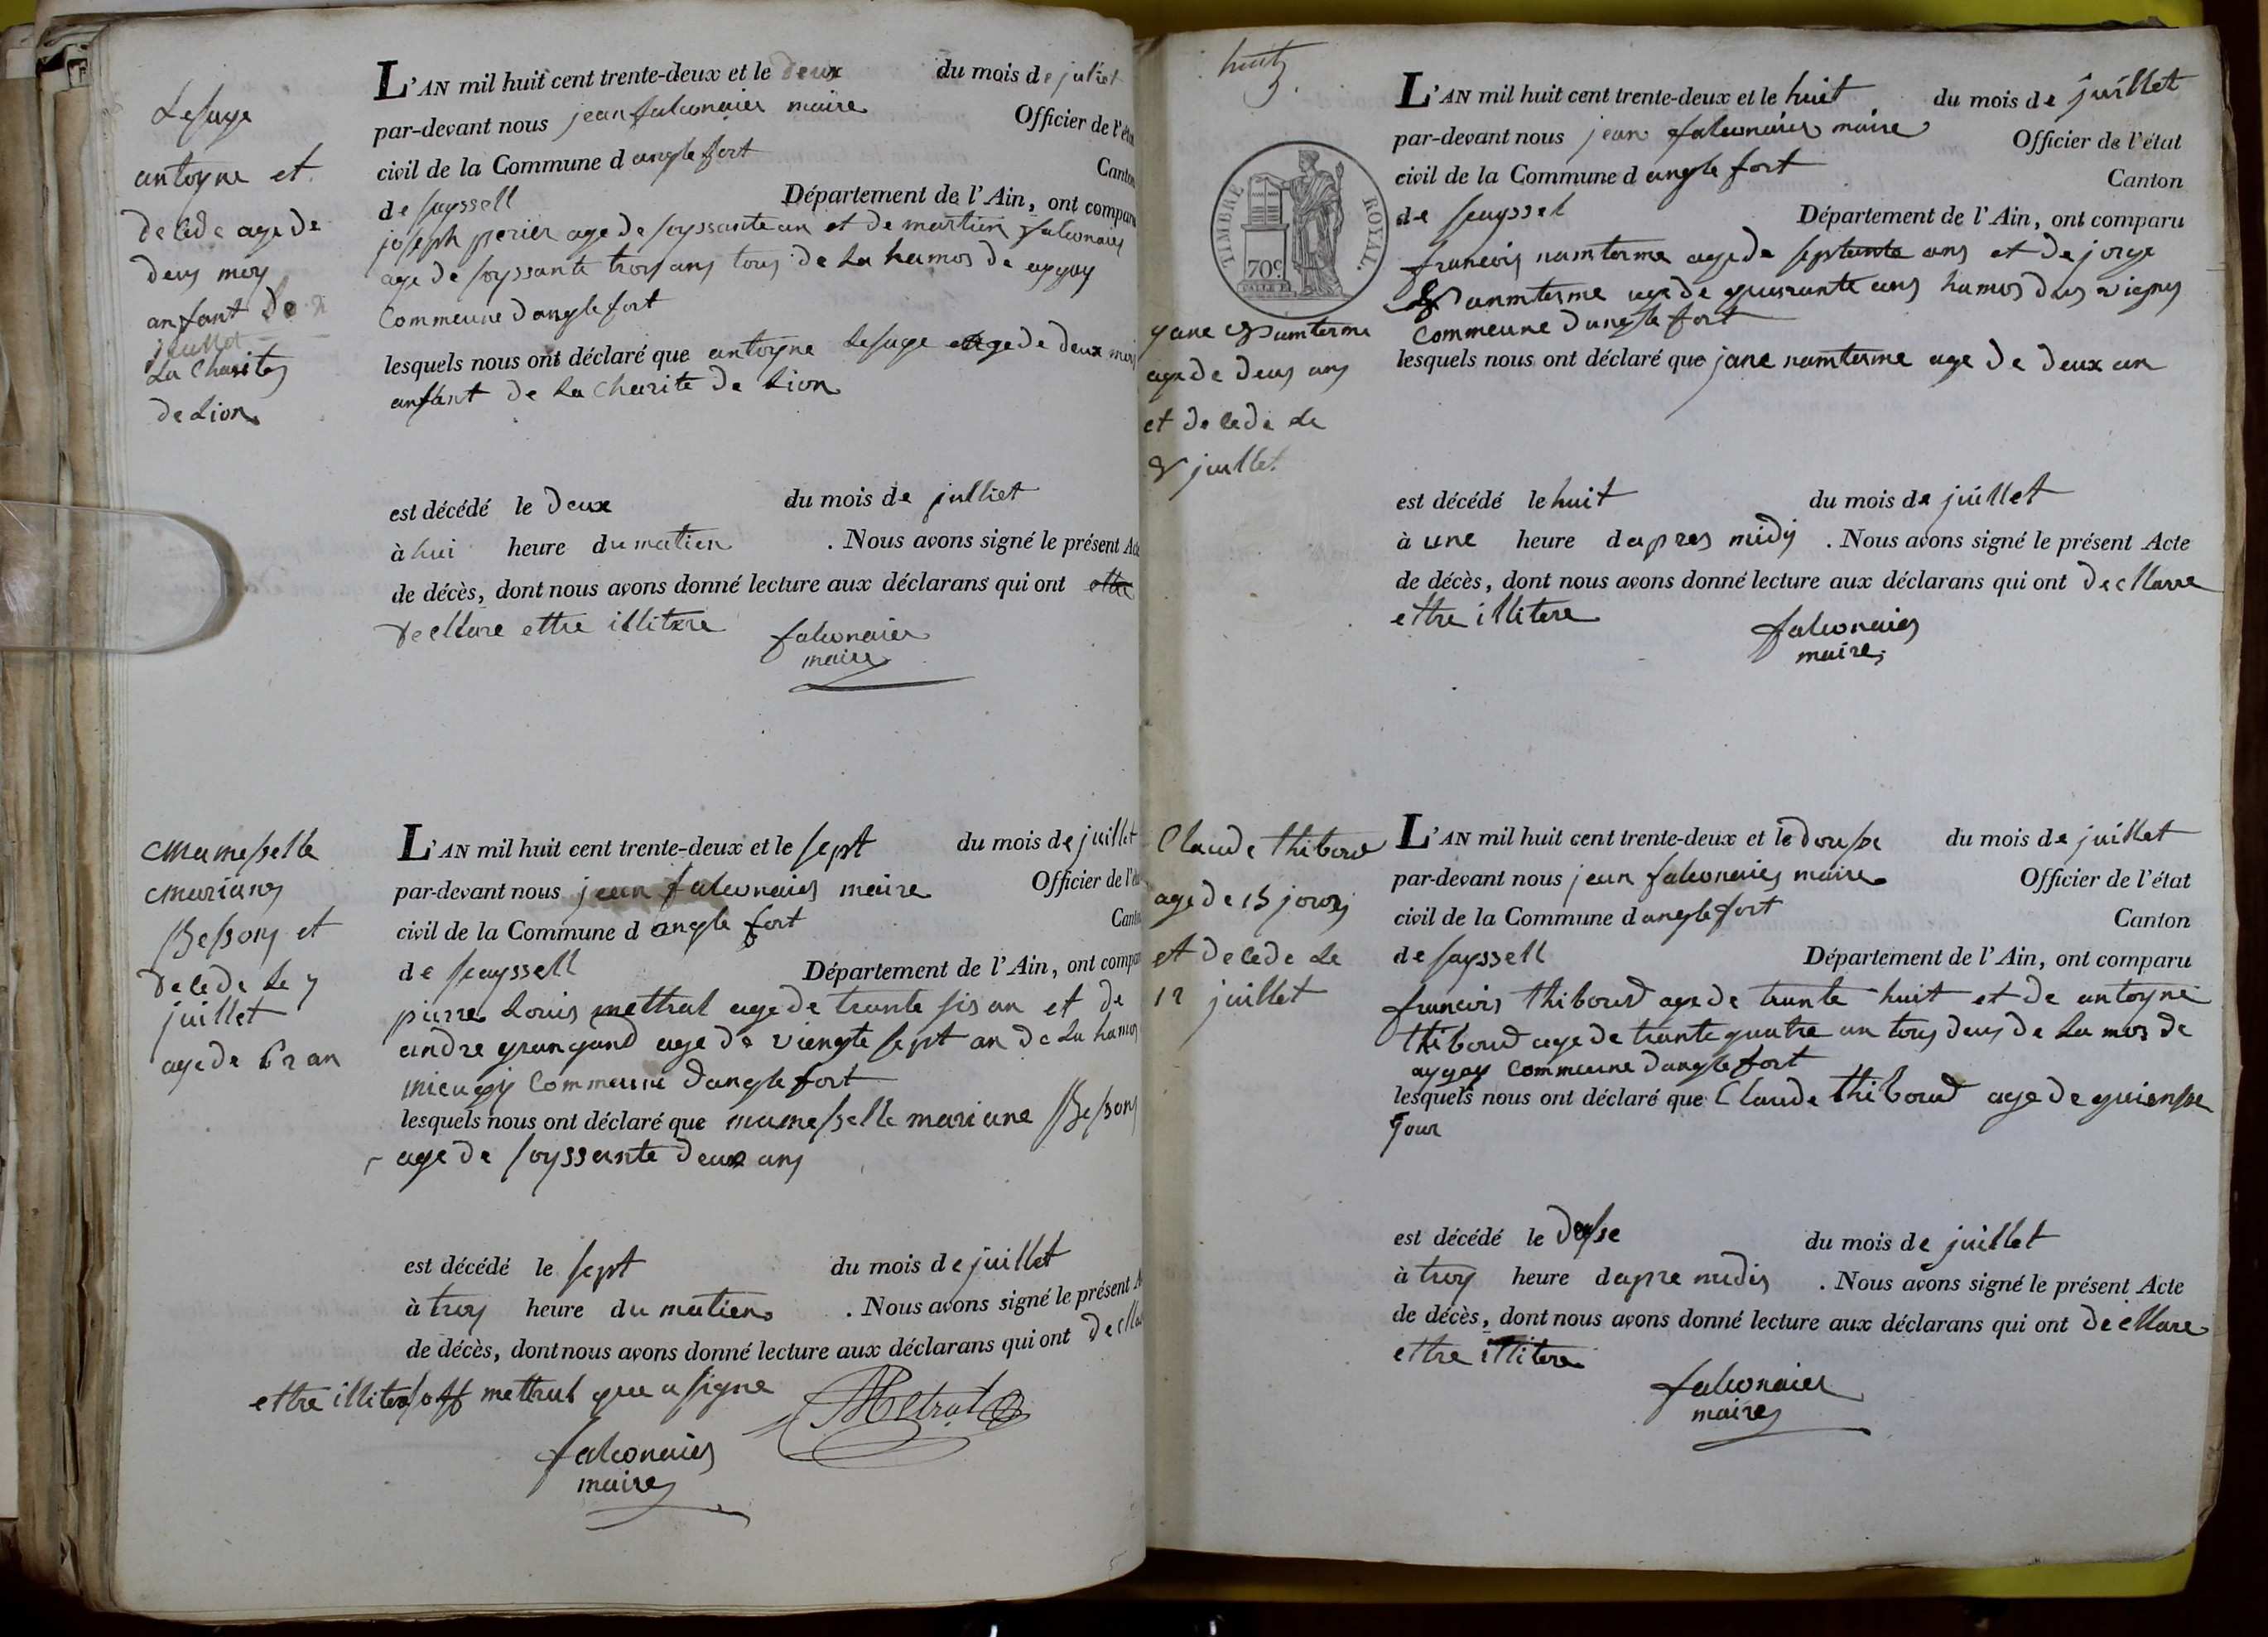 Lesage
antoyne et
decede age de
deus moy
anfant de
juillet
La Charitey
de Lion
L'AN mil huit cent trente-deux et le deux du mois de juliet
par-devant nous jean falconaier maire Officier de l'éta
civil de la Commune d anglefort Canton
de seyssell Département de l'Ain, ont comparu
joseph perier age de soyssante an et de martien falconaier
age de soyssante troy ans tous de La hamos de aygoy
Commeune danglefort
lesquels nous ont déclaré que antoyne Lesage age de deux moy
anfant de La Charite de Lion
est décédé le deux du mois de julliet
à hui heure du matien . Nous avons signé le présent Acte
de décès, dont nous avons donné lecture aux déclarans qui ont ettre
decllare ettre illitere falconaier
maire
mamesselle
mariane
Bessony et
decede Le 7
juillet
age de 62 an
L'AN mil huit cent trente-deux et le sept du mois de juillet
par-devant nous jean falconaier maire Officier de l'éta
civil de la Commune d anglefort Canton
de seayssell Département de l'Ain, ont compar
pierre Louis mettral age de trante sis an et de
andre grangand age de viengte sept an de La hamos
mieugy Commeune danglefort
lesquels nous ont déclaré que mamesselle mariane Bessony
age de soyssante deux ans
est décédé le sept du mois de juillet
à troy heure du matien . Nous avons signé le présent A
de décès, dont nous avons donné lecture aux déclarans qui ont decllar
ettre illitere soff mettral que a signe Metral
falconaier
maire
huit
TIMBRE ROYAL.
70c.
jane namterme
age de deus ans
et decede Le
8 juillet
L'AN mil huit cent trente-deux et le huit du mois de juillet
par-devant nous jean falconaier maire Officier de l'état
civil de la Commune d anglefort Canton
de seayssel Département de l'Ain, ont comparu
francois namterme age de septante ans et de jorge
namterme age de quarante ans hamos des viegnes
Commeune danglefort
lesquels nous ont déclaré que jane namterme age de deux an
est décédé le huit du mois de juillet
à une heure dapres midy . Nous avons signé le présent Acte
de décès, dont nous avons donné lecture aux déclarans qui ont decllare
ettre illitere falconaier
maire
Claude thiboud
age de 15 jours
et decede Le
12 juillet
L'AN mil huit cent trente-deux et le dousse du mois de juillet
par-devant nous jean falconaier maire Officier de l'état
civil de la Commune d anglefort Canton
de sayssell Département de l'Ain, ont comparu
francois thiboud age de trante huit et de antoyne
thiboud age de trante quatre an tous deus de La mos de
aygoy Commeune danglefort
lesquels nous ont déclaré que Claude thiboud age de quiensse
jour
est décédé le dousse du mois de juillet
à troy heure dapre midis . Nous avons signé le présent Acte
de décès, dont nous avons donné lecture aux déclarans qui ont decllare
ettre illitere
falconaier
maire